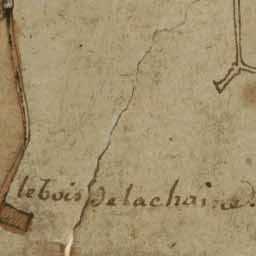 le bois de la chaine